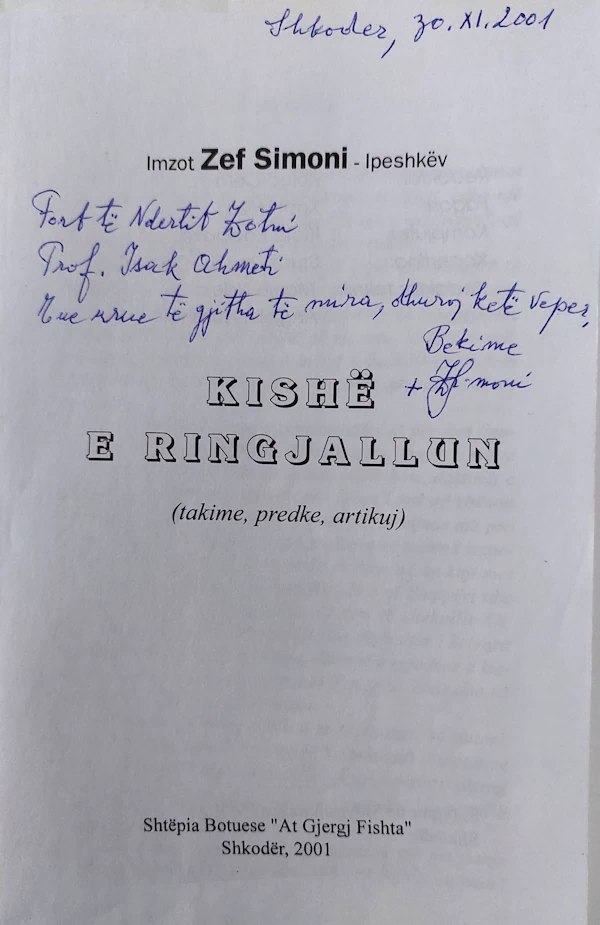 Shkoder, 30.XI.2001
Imzot Zef Simoni - Ipeshkëv
Fort të Ndertit Zotni
Prof. Isak Ahmeti
Tue urue të gjitha të mira, dhuroj ketë veper,
Bekime
KISHË
E RINGJALLUN
(takime, predke, artikuj)
Shtëpia Botuese "At Gjergj Fishta"
Shkodër, 2001